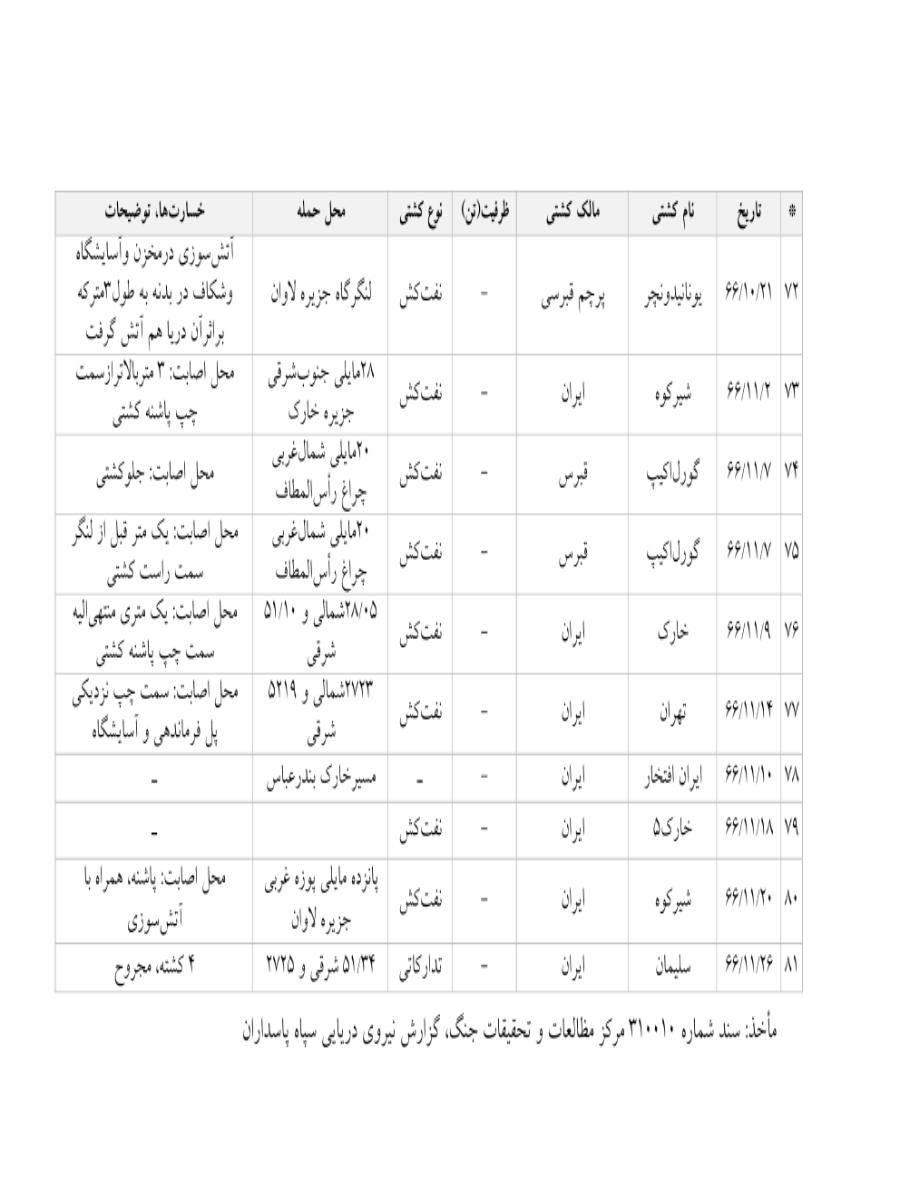 * تاریخ نام کشتی مالک کشتی ظرفیت(تن) نوع کشتی محل حمله خسارت‌ها، توضیحات
۷۲ ۶۶/۱۰/۲۱ یونانیدونچر پرچم قبرسی - نفت‌کش لنگرگاه جزیره لاوان آتش‌سوزی درمخزن وآسایشگاه
وشکاف در بدنه به طول۳مترکه
براثرآن دریا هم آتش گرفت
۷۳ ۶۶/۱۱/۲ شیرکوه ایران - نفت‌کش ۲۸مایلی جنوب‌شرقی
جزیره خارک
محل اصابت: ۳ متربالاترازسمت
چپ پاشنه کشتی
۷۴ ۶۶/۱۱/۷ گورل‌اکیپ قبرس - نفت‌کش ۲۰مایلی شمال‌غربی
چراغ رأس‌المطاف
محل اصابت: جلوکشتی
۷۵ ۶۶/۱۱/۷ گورل‌اکیپ قبرس - نفت‌کش ۲۰مایلی شمال‌غربی
چراغ رأس‌المطاف
محل اصابت: یک متر قبل از لنگر
سمت راست کشتی
۷۶ ۶۶/۱۱/۹ خارک ایران - نفت‌کش ۲۸/۰۵شمالی و ۵۱/۱۰
شرقی
محل اصابت: یک متری منتهی‌الیه
سمت چپ پاشنه کشتی
۷۷ ۶۶/۱۱/۱۴ تهران ایران - نفت‌کش ۲۷۲۳شمالی و ۵۲۱۹
شرقی
محل اصابت: سمت چپ نزدیکی
پل فرماندهی و آسایشگاه
۷۸ ۶۶/۱۱/۱۰ ایران افتخار ایران - - مسیرخارک بندرعباس -
۷۹ ۶۶/۱۱/۱۸ خارک۵ ایران - نفت‌کش -
۸۰ ۶۶/۱۱/۲۰ شیرکوه ایران - نفت‌کش پانزده مایلی پوزه غربی
جزیره لاوان
محل اصابت: پاشنه، همراه با
آتش‌سوزی
۸۱ ۶۶/۱۱/۲۶ سلیمان ایران - تدارکاتی ۵۱/۳۴ شرقی و ۲۷۲۵ ۴ کشته، مجروح
مأخذ: سند شماره ۳۱۰۰۱۰ مرکز مطالعات و تحقیقات جنگ، گزارش نیروی دریایی سپاه پاسداران